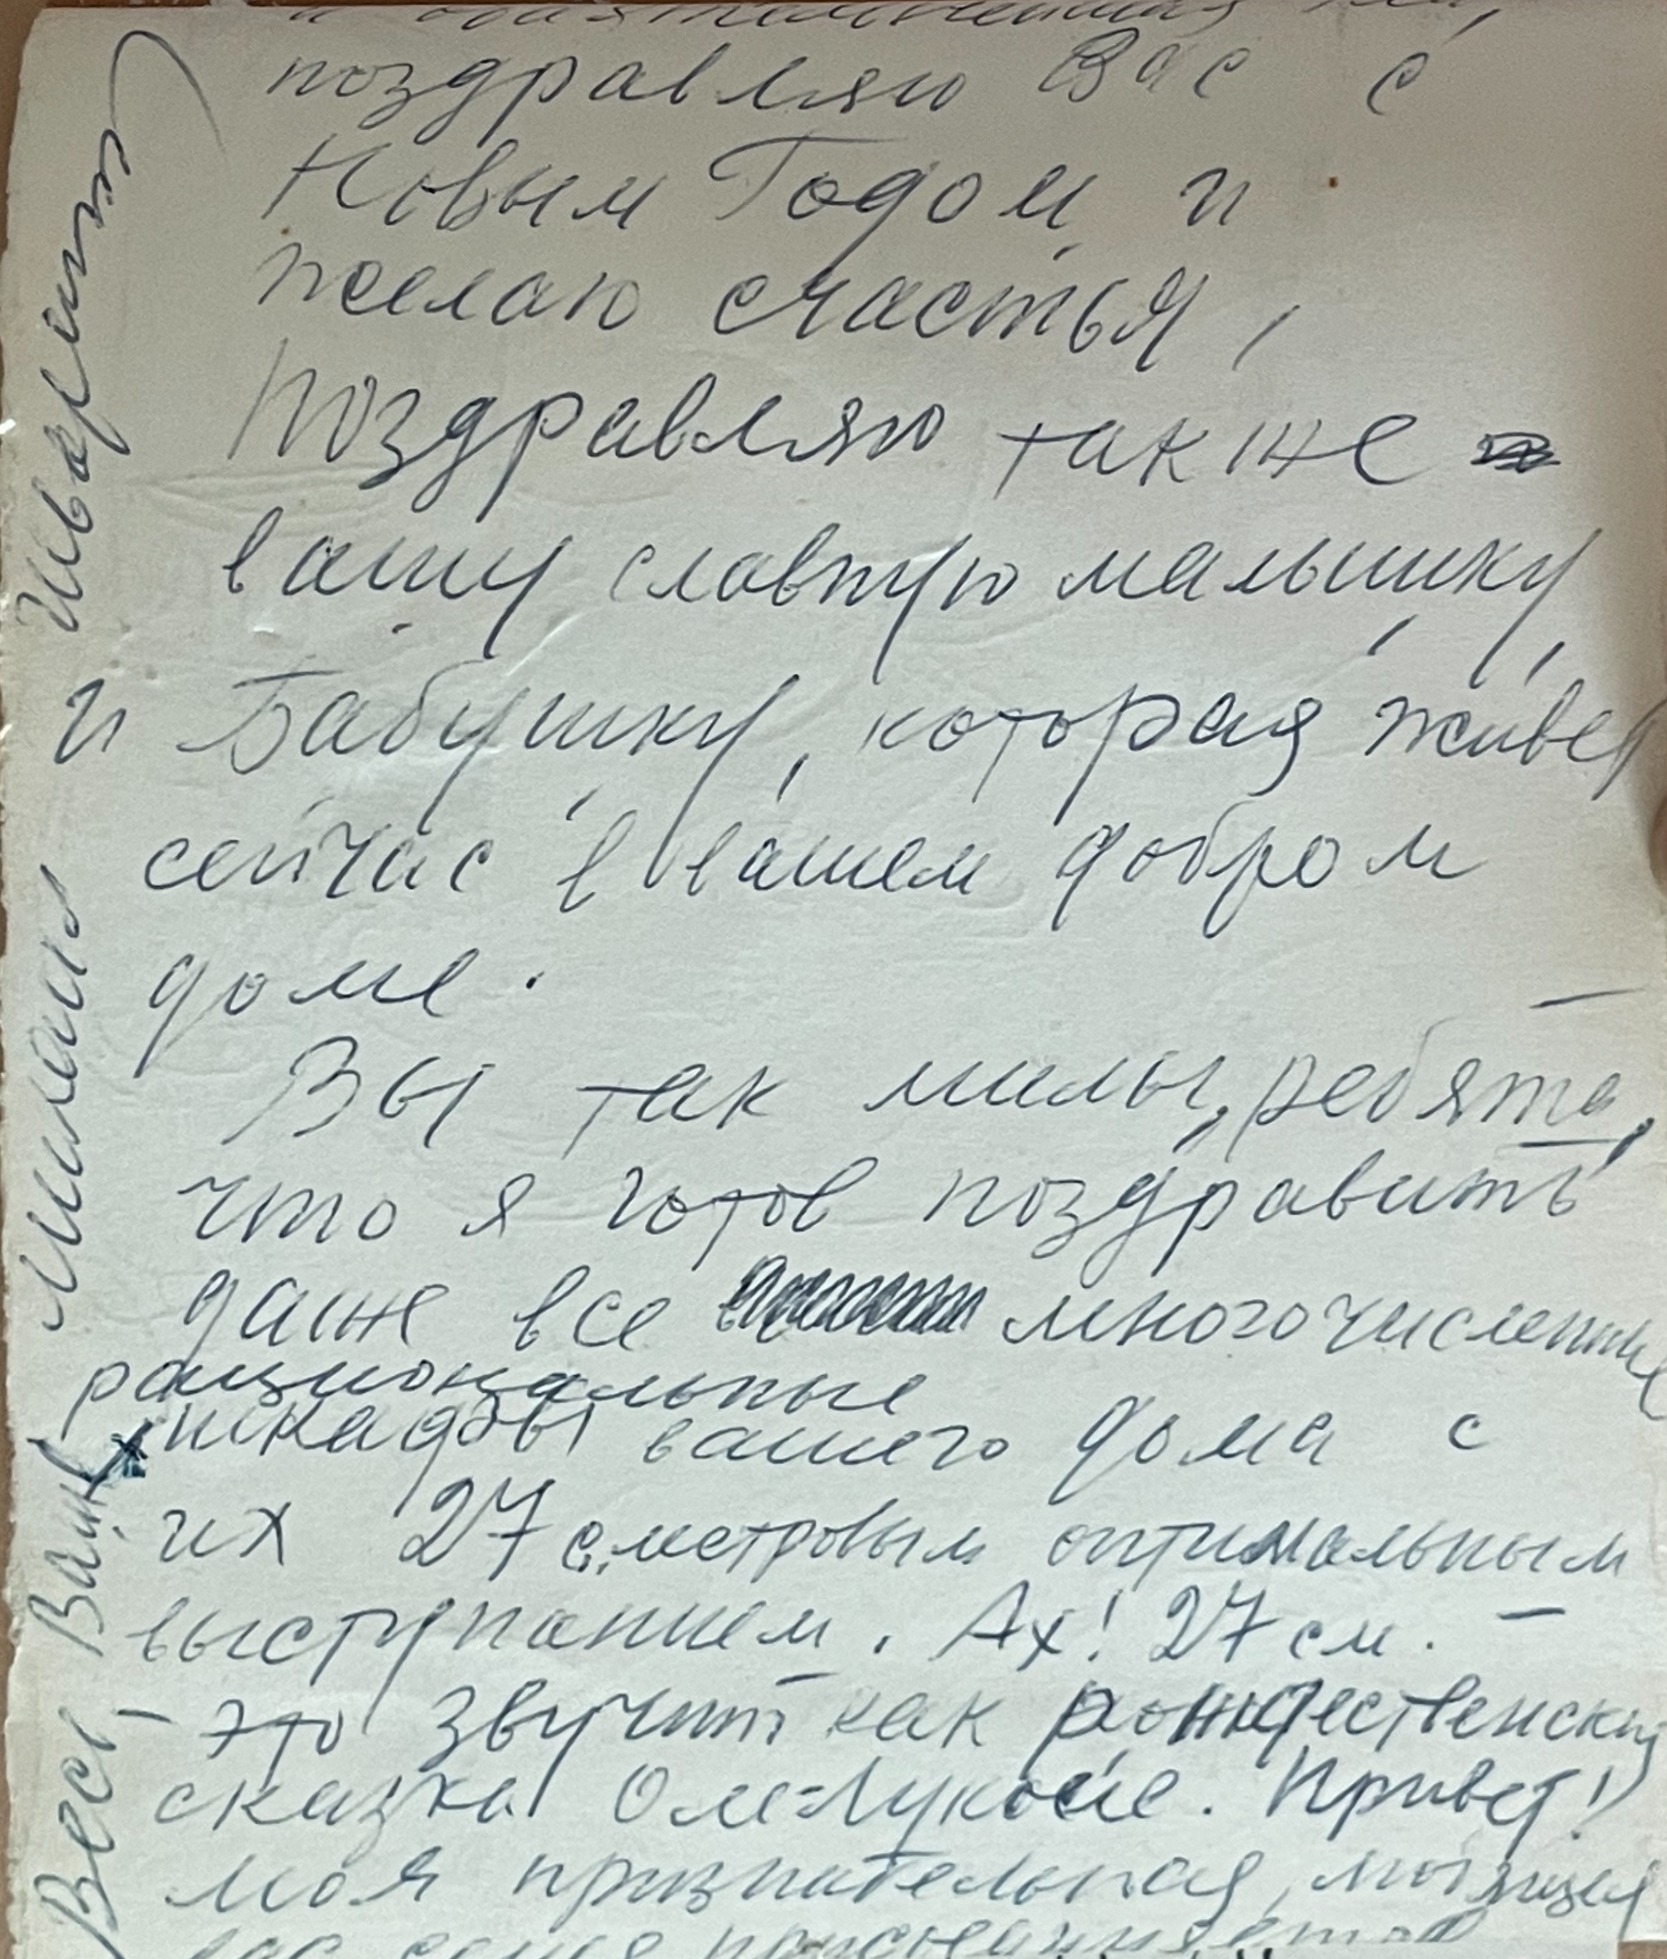 поздравляю Вас с
Новым Годом и
желаю счастья,
Поздравляю также
вашу славную малышку,
и Бабушку, которая живет
сейчас в вашем добром
доме.
Вы так милы, ребята,
что я готов поздравить
даже все многочисленные
рациональные
шкафы вашего дома с
их 27 с.метровым оптимальным
выступанием. Ах! 27 см. –
– это звучит как рождественская
сказка Оле-Лукойе. Привет!
моя признательная,
Весь Ваш